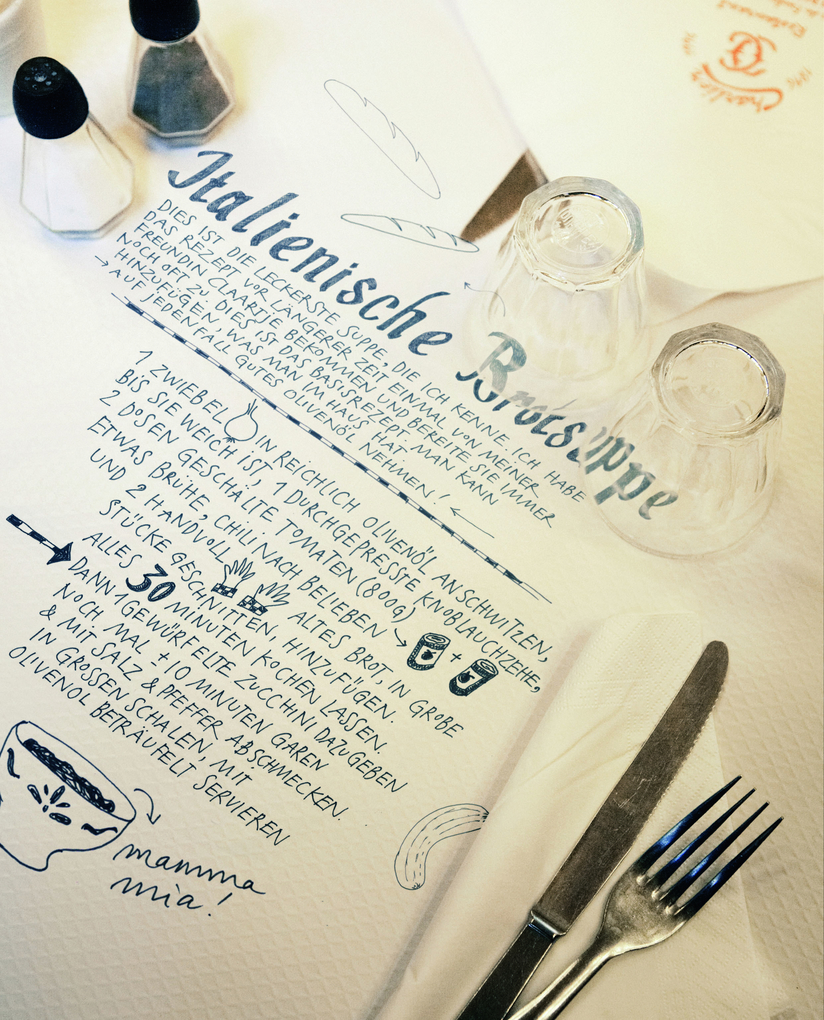 Italienische Brotsuppe
DIES IST DIE LECKERSTE SUPPE, DIE ICH KENNE. ICH HABE
DAS REZEPT VOR LÄNGERER ZEIT EINMAL VON MEINER
FREUNDIN CLAARTJE BEKOMMEN UND BEREITE SIE IMMER
NOCH OFT ZU. DIES IST DAS BASISREZEPT. MAN KANN
HINZUFÜGEN, WAS MAN IM HAUS HAT.
→ AUF JEDENFALL GUTES OLIVENÖL NEHMEN! ←
1 ZWIEBEL IN REICHLICH OLIVENÖL ANSCHWITZEN,
BIS SIE WEICH IST, 1 DURCHGEPRESSTE KNOBLAUCHZEHE,
2 DOSEN GESCHÄLTE TOMATEN (800g)
ETWAS BRÜHE, CHILI NACH BELIEBEN
UND 2 HANDVOLL ALTES BROT, IN GROBE
STÜCKE GESCHNITTEN, HINZUFÜGEN.
ALLES 30 MINUTEN KOCHEN LASSEN.
DANN 1 GEWÜRFELTE ZUCCHINI DAZUGEBEN
NOCH MAL ±10 MINUTEN GAREN
& MIT SALZ & PFEFFER ABSCHMECKEN.
IN GROSSEN SCHALEN, MIT
OLIVENÖL BETRÄUFELT SERVIEREN
mamma
mia!
Chartier
1896